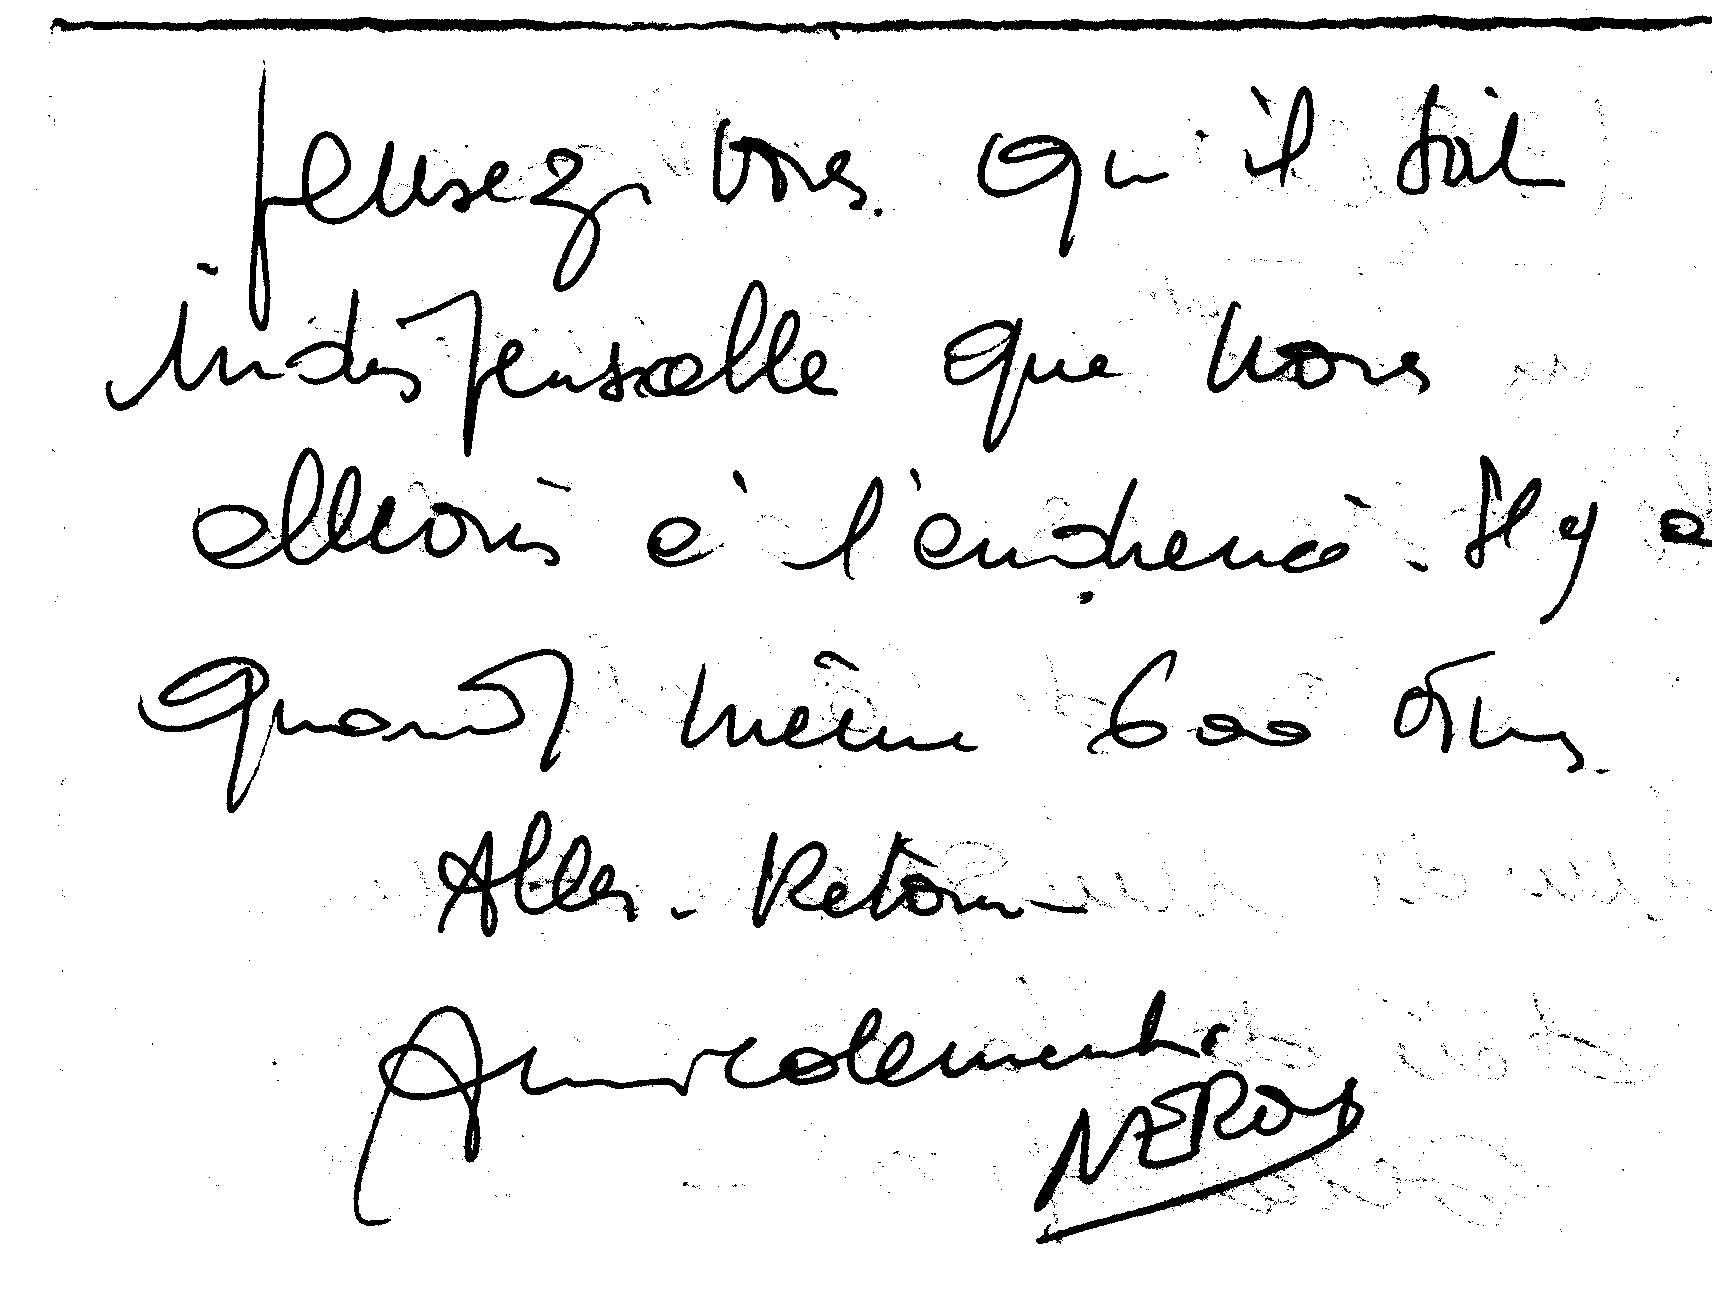 pensez vous qu'il soit
indispensable que nous
allions à l'audience. Il y a
quand même 600 kms.
Aller-Retour
Amicalement.
NEROY